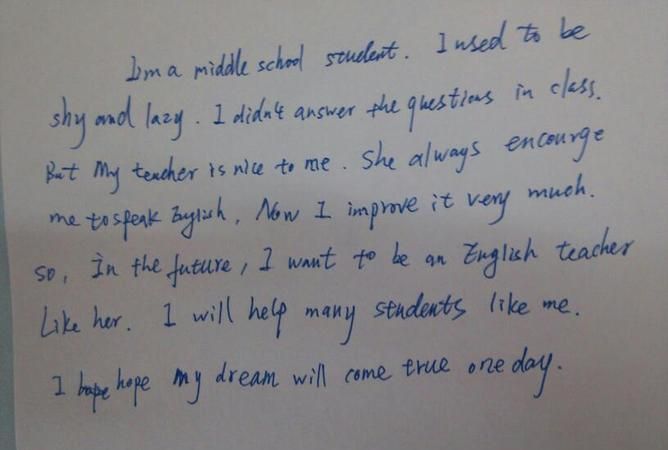 I'm a middle school student. I used to be
shy and lazy. I didn't answer the questions in class.
But My teacher is nice to me. She always encourge
me to speak English. Now I improve it very much.
so, In the future, I want to be an English teacher
Like her. I will help many students like me.
I hope my dream will come true one day.